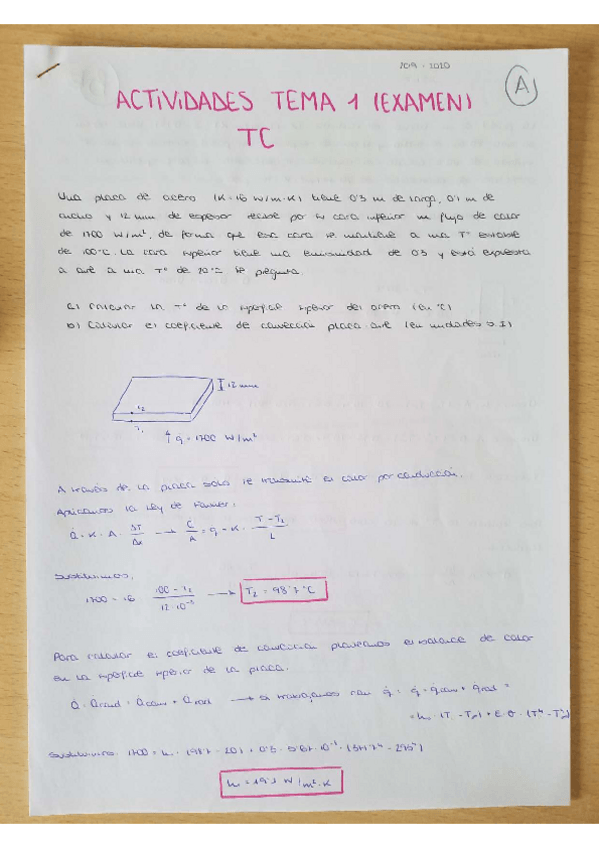 2019 - 2020
A
ACTIVIDADES TEMA 1 (EXAMEN)
TC
Una placa de acero (K=16 W/m·K) tiene 0'3 m de largo, 0'1 m de
ancho y 12 mm de espesor recibe por la cara inferior un flujo de calor
de 1700 W/m², de forma que esa cara se mantiene a una Tª estable
de 100°C. La cara superior tiene una emisividad de 0'3 y está expuesta
a aire a una Tª de 20°C. Se pregunta.
a) Calcular la Tª de la superficie superior del acero (en °C)
b) Calcular el coeficiente de convección placa aire (en unidades S.I)
12 mm
T2
T1
q = 1700 W/m²
A través de la placa solo se transmite el calor por conducción.
Aplicamos la ley de Fourier:
Q̇ = K · A · ΔT/Δx → Q̇/A = q̇ = K · T - T2/L
Sustituimos,
1700 = 16 100 - T2/12·10⁻³ → T2 = 98'7°C
Para calcular el coeficiente de convección planteamos el balance de calor
en la superficie superior de la placa.
Q̇ = Q̇cond = Q̇conv + Q̇rad → si trabajamos con q̇ : q̇ = q̇conv + q̇rad =
= h · (T - T) + ε · σ · (T⁴ - T⁴)
Sustituimos: 1700 = h · (98'7 - 20) + 0'3 · 5'67·10⁻⁸ · (371'7⁴ - 293⁴)
h = 19'3 W/m²·K